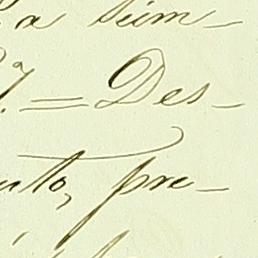 a sum-
7. = Des-
nto, pre-